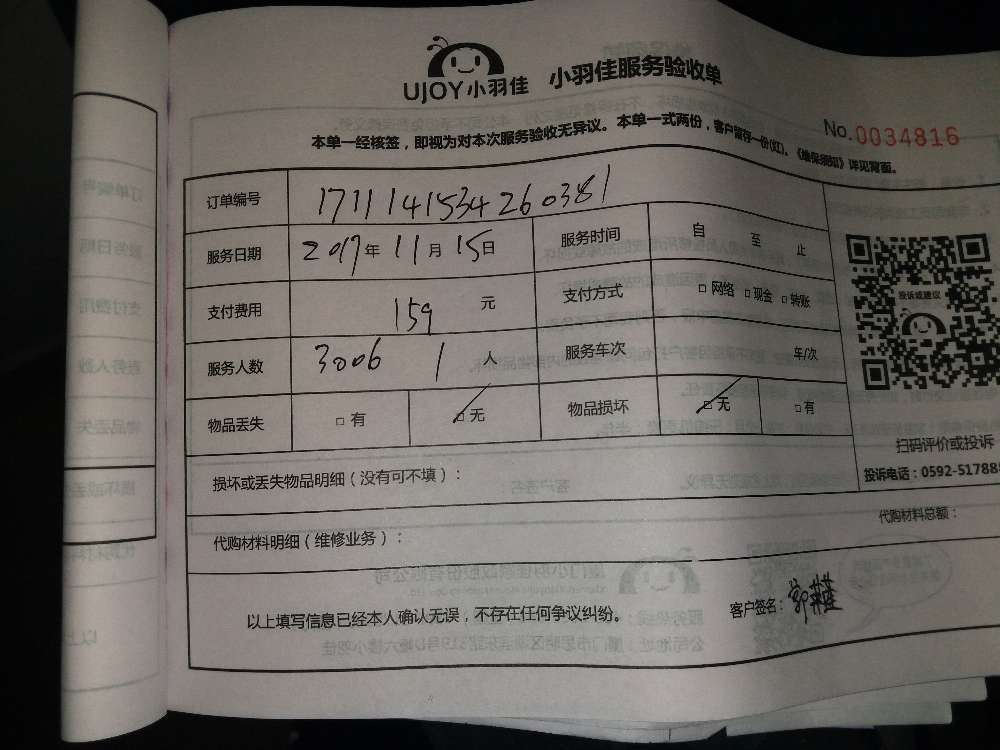 UJOY小羽佳 小羽佳服务验收单
No.0034816
本单一经核签，即视为对本次服务验收无异议。本单一式两份，客户留存一份(红)、《维保须知》详见背面。
订单编号 17111415342603​81
服务日期 2017年11月15日 服务时间 自 至 止
支付费用 159 元 支付方式 □网络 □现金 □转账
服务人数 3006 1 人 服务车次 车/次
物品丢失 □有 □无 物品损坏 □无 □有
投诉或建议
扫码评价或投诉
投诉电话：0592-517885
损坏或丢失物品明细（没有可不填）：
代购材料明细（维修业务）： 代购材料总额：
以上填写信息已经本人确认无误，不存在任何争议纠纷。 客户签名：